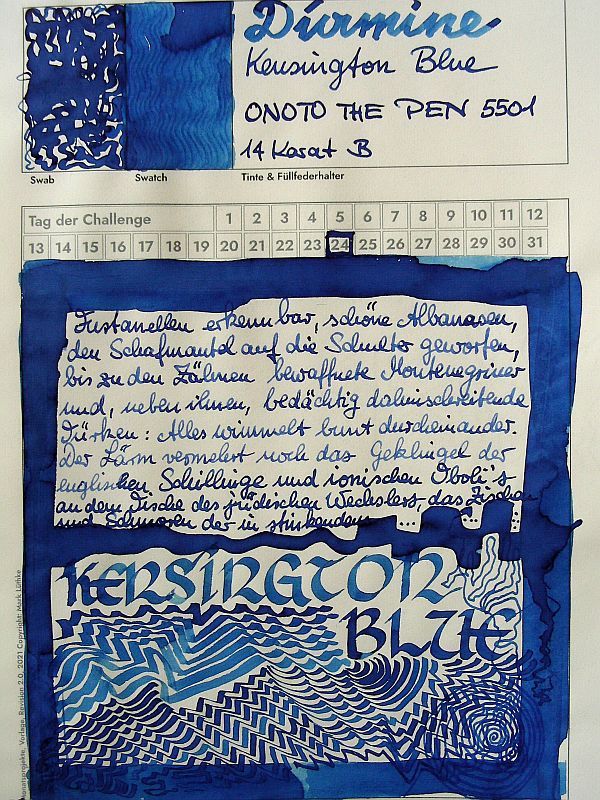 Diamine
Kensington Blue
ONOTO THE PEN 5501
14 Karat B
Swab
Swatch
Tinte & Füllfederhalter
Tag der Challenge 1 2 3 4 5 6 7 8 9 10 11 12
13 14 15 16 17 18 19 20 21 22 23 24 25 26 27 28 29 30 31
Fustanellen erkennbar, schöne Albanesen,
den Schafmantel auf die Schulter geworfen,
bis zu den Zähnen bewaffnete Montenegriner
und, neben ihnen, bedächtig dahinschreitende
Türken: Alles wimmelt bunt durcheinander.
Der Lärm vermehrt noch das Geklingel der
englischen Schillinge und ionischen Oboli's
an dem Tische des jüdischen Wechslers, das Zischen
und Schmoren der in stinkendem .... , ....
KENSINGTON
BLUE
Monatsprojekte, Vorlage, Revision 2.0, 2021 Copyright: Mark Lüthke